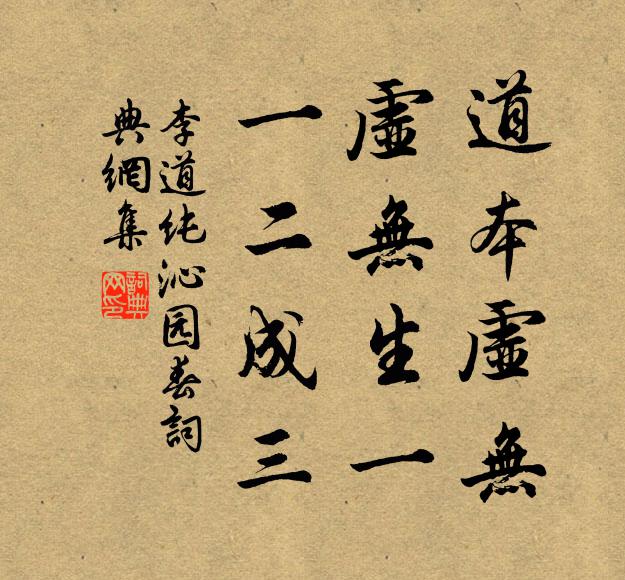 道本虛無
虛無生一
一二成三
李道纯沁园春詞
典網集
詞典
网印